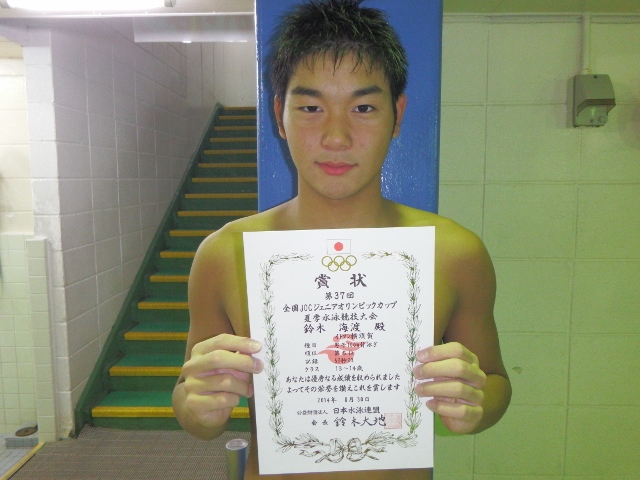 賞状
第37回
全国JOCジュニアオリンピックカップ
夏季水泳競技大会
鈴木 海渡 殿
イトマン横須賀
種目 男子100m背泳ぎ
順位
記録
クラス 13～14歳
あなたは優秀なる成績を収められました
よってその栄誉を讃えこれを賞します
2014年 8月30日
公益財団法人 日本水泳連盟
会長 鈴木大地